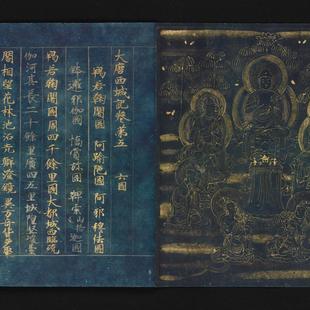 大唐西域記卷第五　六國
羯若鞠闍國　阿踰陁國　阿耶穆佉國
鉢邏耶伽國　憍賞弥國　鞞索山格迦國
羯若鞠闍國周四千餘里國大都城西臨殑
伽河其長二十餘里廣四五里城隍堅峻臺
閣相望花林池沼光鮮澄鏡異方奇貨多聚